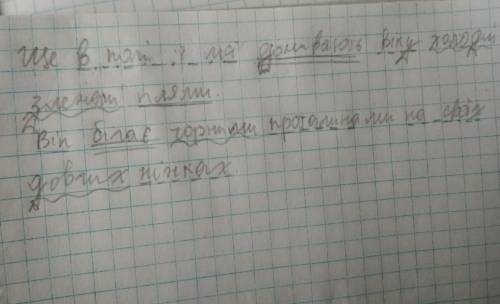 Ще в полі і ма доживають віку холодні
зледенілі плями.
Він білає чорними прогалинами на своїх
довгих ніжках.